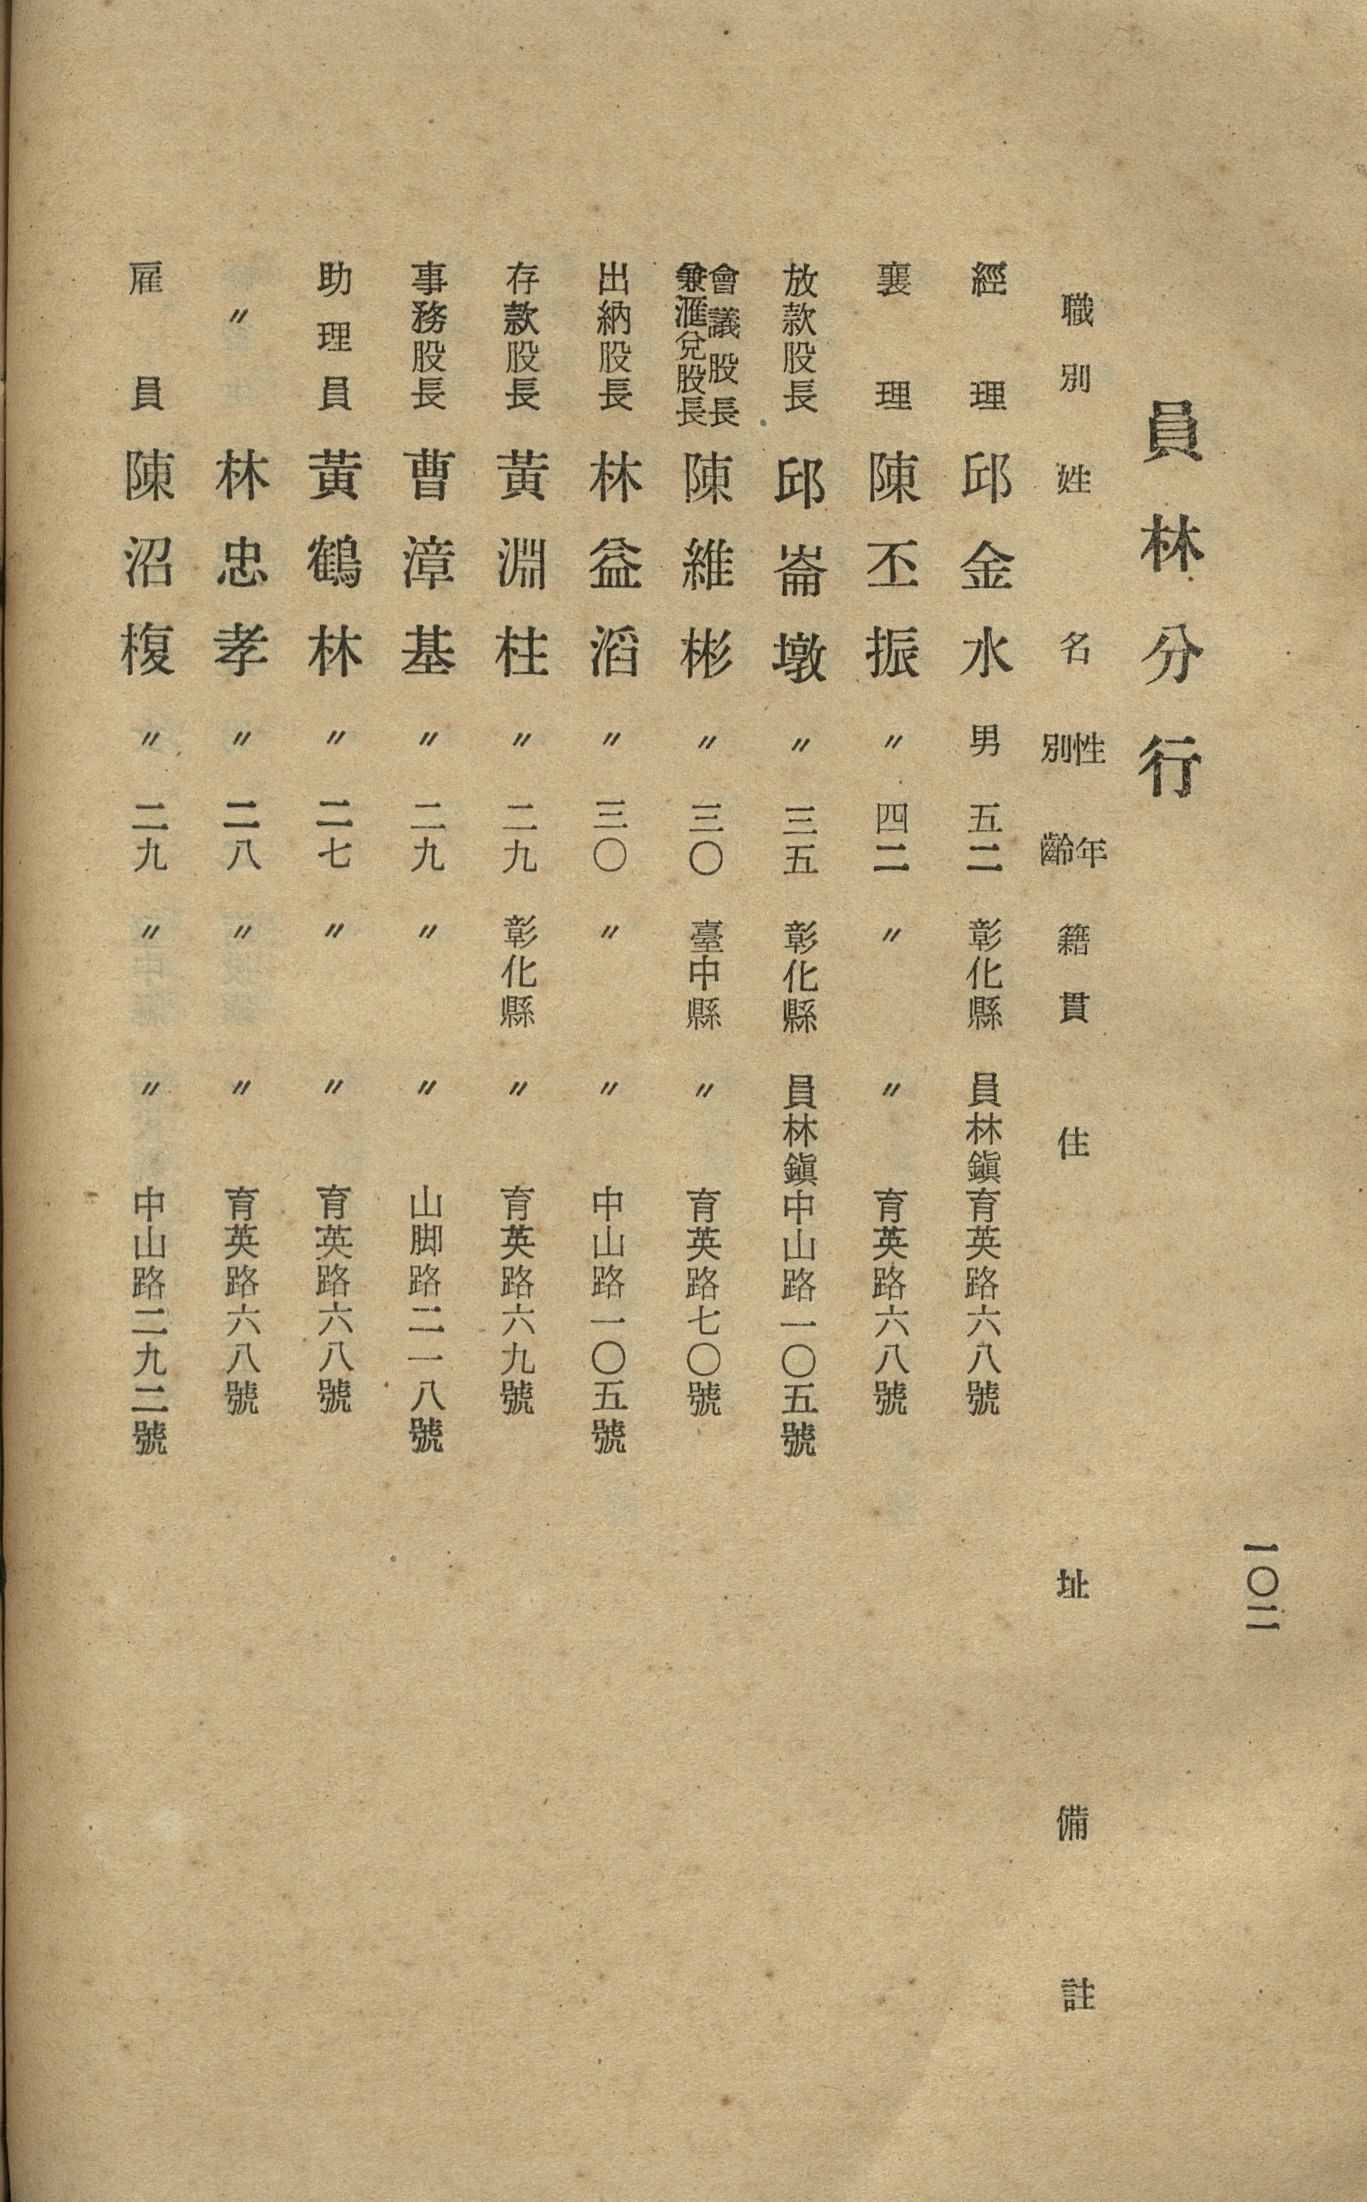 一〇二
員林分行
職別 姓名 性別 年齡 籍貫 住址 備註
經理 邱金水 男 五二 彰化縣 員林鎭育英路六八號
襄理 陳丕振 〃 四二 〃 〃 育英路六八號
放款股長 邱崙墩 〃 三五 彰化縣 員林鎭中山路一〇五號
會議股長兼滙兌股長 陳維彬 〃 三〇 臺中縣 〃 育英路七〇號
出納股長 林益滔 〃 三〇 〃 〃 中山路一〇五號
存款股長 黃淵柱 〃 二九 彰化縣 〃 育英路六九號
事務股長 曹漳基 〃 二九 〃 〃 山脚路二一八號
助理員 黃鶴林 〃 二七 〃 〃 育英路六八號
〃 林忠孝 〃 二八 〃 〃 育英路六八號
雇員 陳沼椱 〃 二九 〃 〃 中山路二九二號